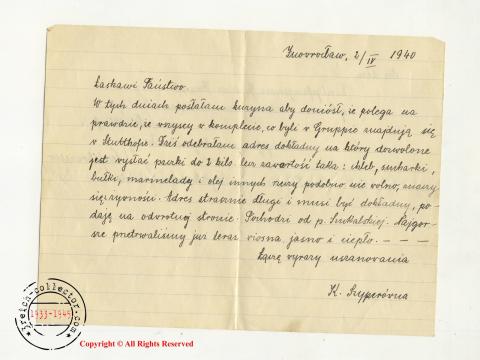 Inowrocław, 2/IV 1940
Łaskawi Państwo
W tych dniach posłałam kuzyna aby doniósł, że polega na
prawdzie, że wszyscy w komplecie, co byli w Gruppie znajdują się
w Stutthofie. Dziś odebrałam adres dokładny na który dozwolone
jest wysłać paczki do 2 kilo. lecz zawartość taka: chleb, sucharki,
bułki, marmeladę i olej innych rzeczy podobno nie wolno,
Adres strasznie długi i musi być dokładny, po-
daję na odwrotnej stronie. Pochodzi od p. Najgor-
sze przetrwaliśmy już teraz wiosna jasno i ciepło. — — —
Łączę wyrazy uszanowania
K.
3reich-collector.com
1933-1945
Copyright © All Rights Reserved